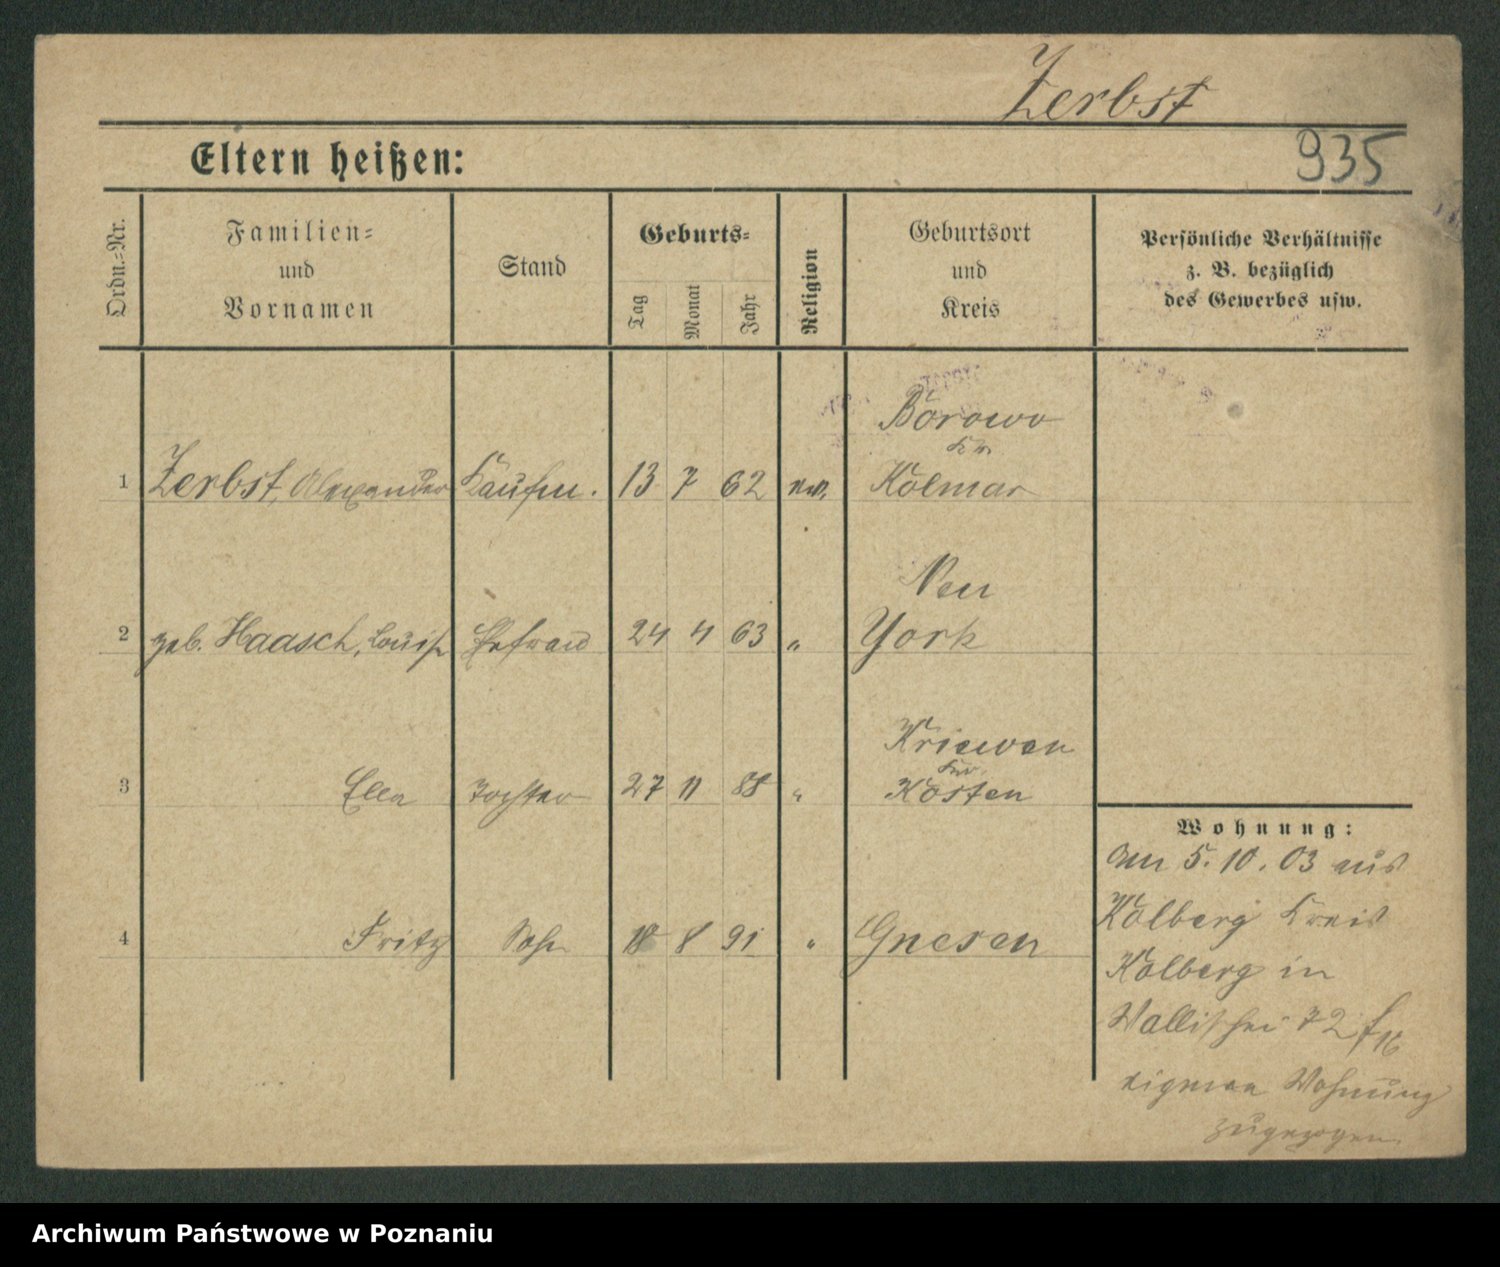 Zerbst
935
Eltern heißen:
Ordn.-Nr.
Familien-
und
Vornamen
Stand
Geburts-
Tag
Monat
Jahr
Religion
Geburtsort
und
Kreis
Persönliche Verhältnisse
z. B. bezüglich
des Gewerbes usw.
Borowo
Kr.
1 Zerbst, Alexander Kaufm. 13 7 62 ev. Kolmar
Neu
2 geb. Haasch, Louise Ehefrau 24 4 63 " York
Kriewen
Kr.
3 Ella Tochter 27 11 88 " Kosten
4 Fritz Sohn 18 8 91 " Gnesen
Wohnung:
am 5. 10. 03 aus
Kolberg Kreis
Kolberg in
Wallischei 72
eigener Wohnung
zugezogen
Archiwum Państwowe w Poznaniu